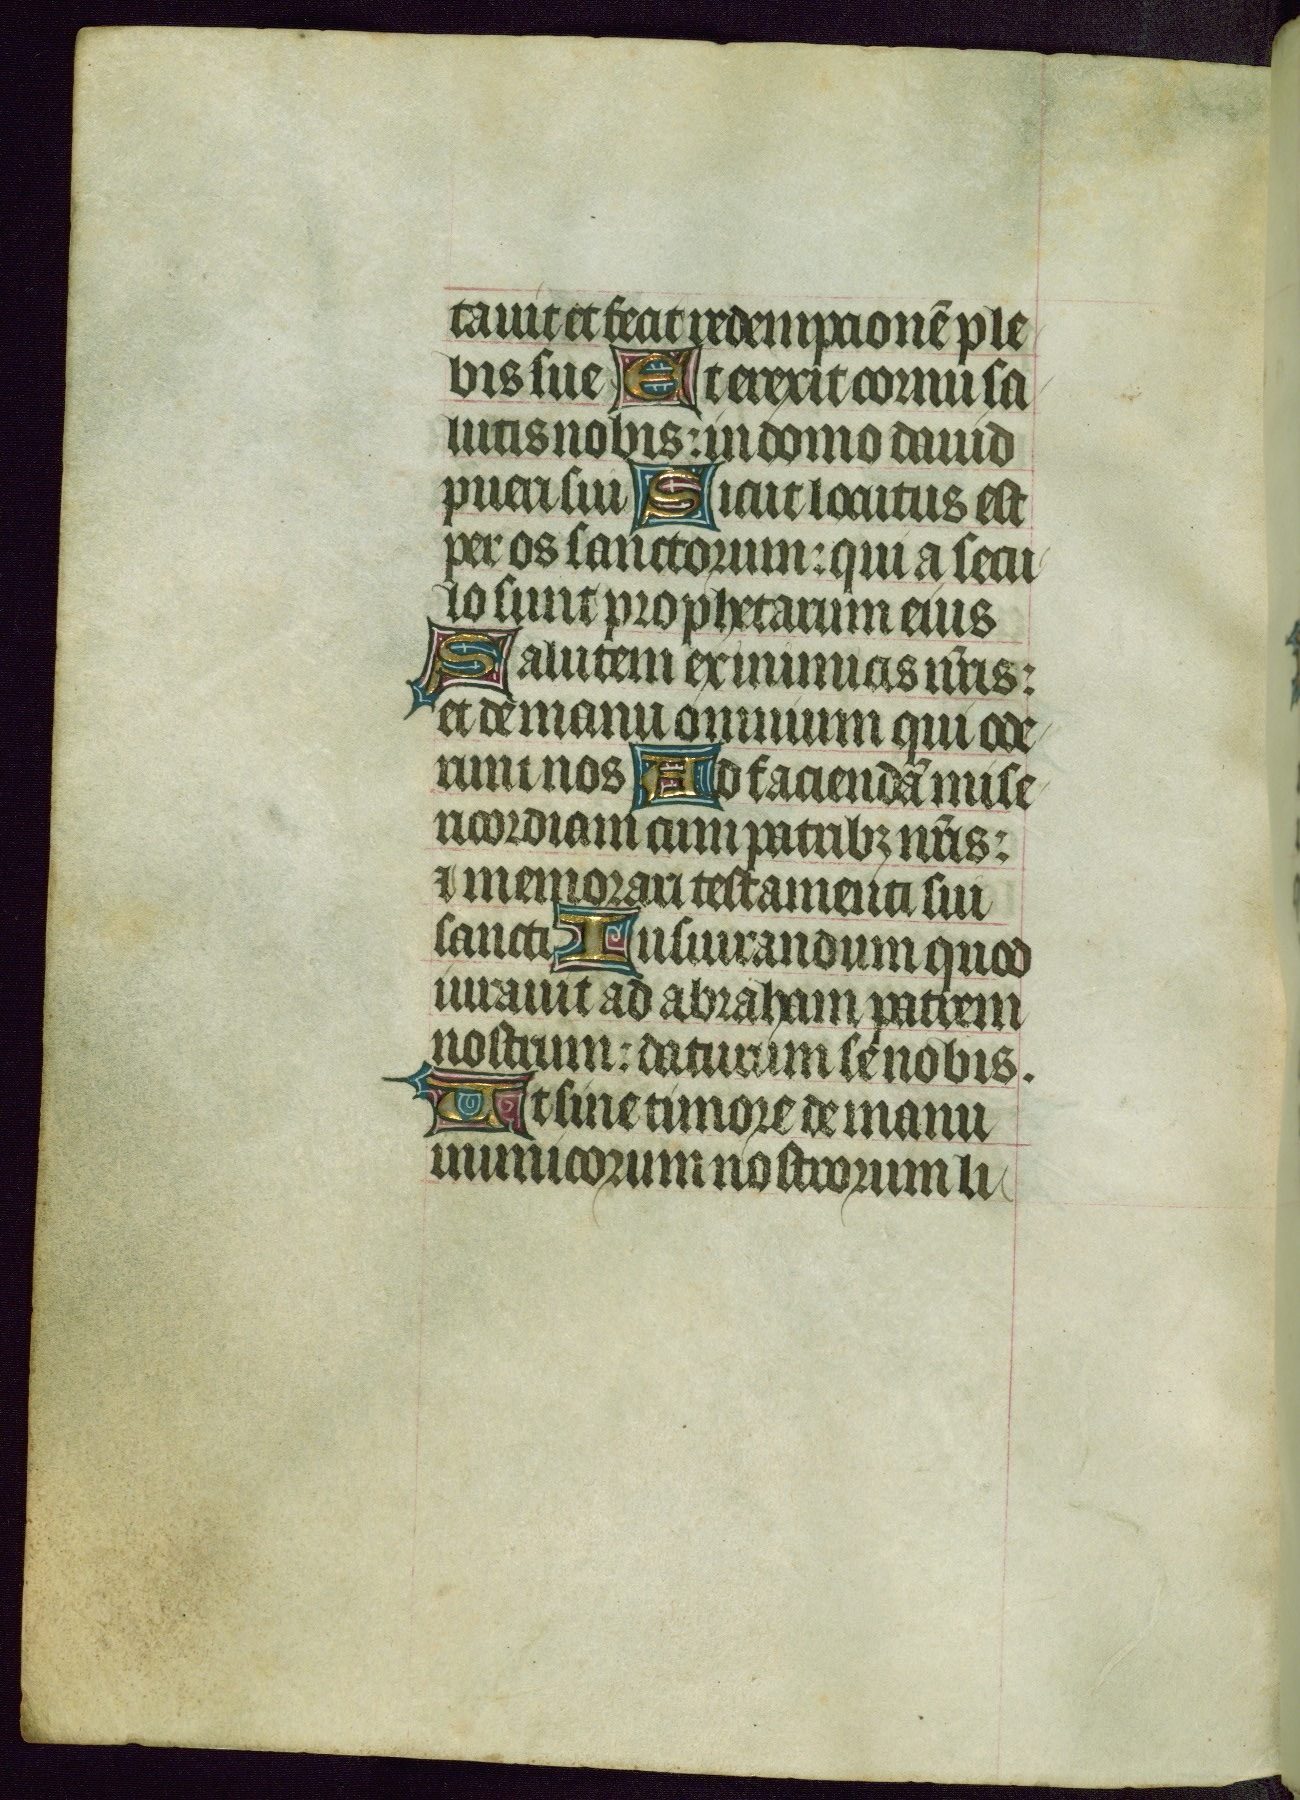 tauit et fecit redemptionē ple
bis sue Et erexit cornu sa
lutis nobis: in domo dauid
pueri sui Sicut locutus est
per os sanctorum: qui a secu
lo sunt prophetarum eius
Salutem ex inimicis nr̄is:
et de manu omnium qui ode
runt nos Ad faciendā mise
ricordiam cum patribꝫ nr̄is:
⁊ memorari testamenti sui
sancti Iusiurandum quod
iurauit ad abraham patrem
nostrum: daturum se nobis.
Ut sine timore de manu
inimicorum nostrorum li